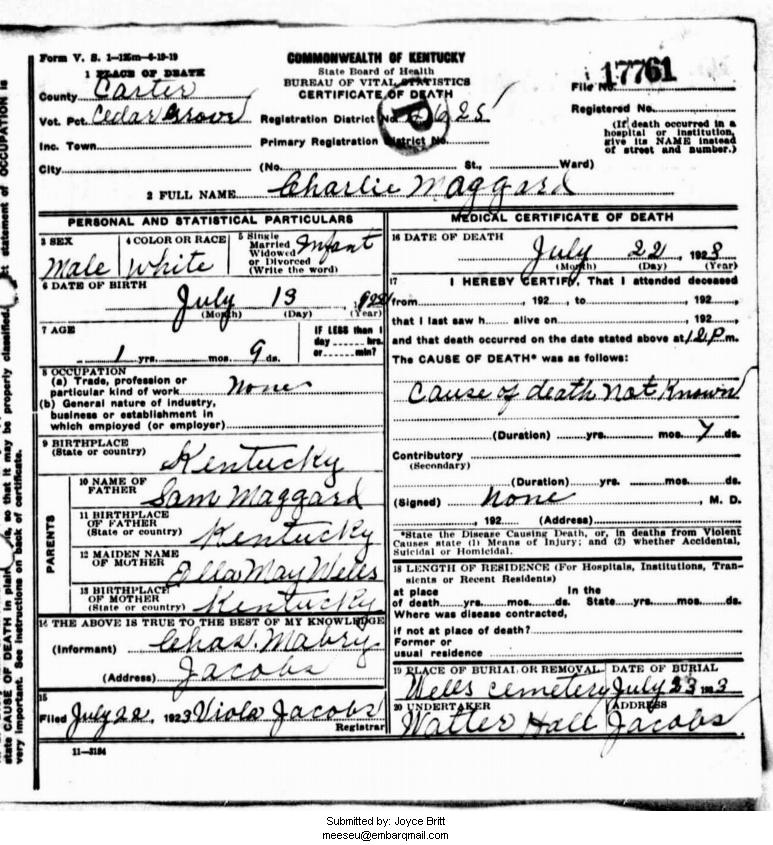 Form V. S. 1—12 5m—6-19-19
COMMONWEALTH OF KENTUCKY
State Board of Health
BUREAU OF VITAL STATISTICS
CERTIFICATE OF DEATH
File No. 17761
Registered No.
(If death occurred in a hospital or institution, give its NAME instead of street and number.)
1 PLACE OF DEATH
County Carter
Vot. Pct. Cedar Grove Registration District No. 625
Inc. Town Primary Registration District No.
City (No. St., Ward)
2 FULL NAME Charlie Maggard
PERSONAL AND STATISTICAL PARTICULARS
3 SEX Male
4 COLOR OR RACE White
5 Single Married Widowed or Divorced (Write the word) Infant
6 DATE OF BIRTH
July 13
(Month) (Day) (Year)
7 AGE
1 yrs. mos. 9 ds.
IF LESS than 1 day hrs. or min?
8 OCCUPATION
(a) Trade, profession or particular kind of work None
(b) General nature of industry, business or establishment in which employed (or employer)
9 BIRTHPLACE
(State or country) Kentucky
PARENTS
10 NAME OF FATHER Sam Maggard
11 BIRTHPLACE OF FATHER (State or country) Kentucky
12 MAIDEN NAME OF MOTHER Ella May Wells
13 BIRTHPLACE OF MOTHER (State or country) Kentucky
14 THE ABOVE IS TRUE TO THE BEST OF MY KNOWLEDGE
(Informant) Chas. Mabry
(Address) Jacobs
15
Filed July 22, 1923 Viola Jacobs
Registrar
11—3184
MEDICAL CERTIFICATE OF DEATH
16 DATE OF DEATH
July 22, 1923
(Month) (Day) (Year)
17 I HEREBY CERTIFY, That I attended deceased
from , 192 , to , 192 ,
that I last saw h alive on , 192 ,
and that death occurred on the date stated above at 12 P m.
The CAUSE OF DEATH* was as follows:
Cause of death Not Known
(Duration) yrs. mos. 7 ds.
Contributory
(Secondary)
(Duration) yrs. mos. ds.
(Signed) None , M. D.
, 192 (Address)
*State the Disease Causing Death, or, in deaths from Violent Causes state (1) Means of Injury; and (2) whether Accidental, Suicidal or Homicidal.
18 LENGTH OF RESIDENCE (For Hospitals, Institutions, Transients or Recent Residents)
at place of death yrs. mos. ds. In the State yrs. mos. ds.
Where was disease contracted,
if not at place of death?
Former or
usual residence
19 PLACE OF BURIAL OR REMOVAL DATE OF BURIAL
Wells Cemetery July 23 1923
20 UNDERTAKER ADDRESS
Walter Hall Jacobs
state CAUSE OF DEATH in plain, so that it may be properly classified. statement of OCCUPATION is
very important. See instructions on back of certificate.
Submitted by: Joyce Britt
meeseu@embarqmail.com